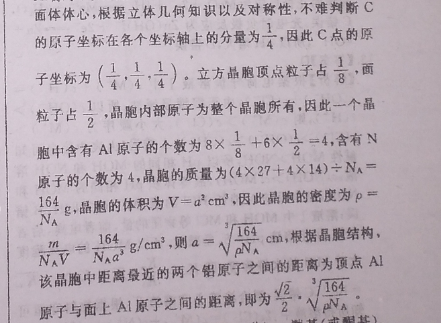 面体体心,根据立体几何知识以及对称性,不难判断 C
的原子坐标在各个坐标轴上的分量为 1/4 ,因此 C 点的原
子坐标为 (1/4, 1/4, 1/4) 。立方晶胞顶点粒子占 1/8 ,面
粒子占 1/2 ,晶胞内部原子为整个晶胞所有,因此一个晶
胞中含有 Al 原子的个数为 8× 1/8 +6× 1/2 =4,含有 N
原子的个数为 4,晶胞的质量为(4×27+4×14)÷N_A=
164/N_A g,晶胞的体积为 V=a³ cm³,因此晶胞的密度为 ρ=
m/(N_A V) = 164/(N_A a³) g/cm³,则 a= ∛(164/(ρN_A)) cm,根据晶胞结构,
该晶胞中距离最近的两个铝原子之间的距离为顶点 Al
原子与面上 Al 原子之间的距离,即为 √2/2 · ∛(164/(ρN_A)) 。